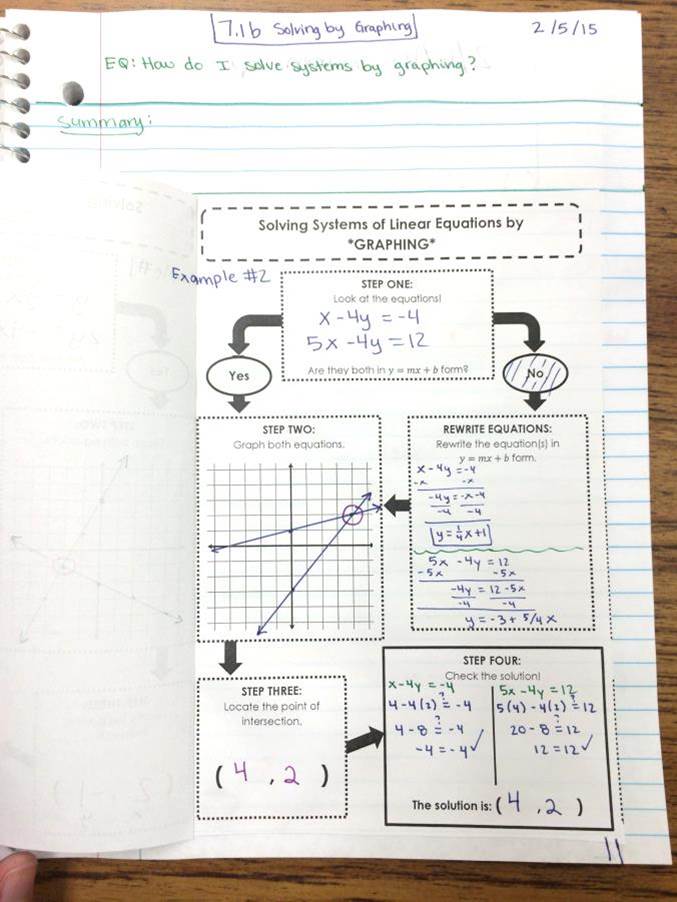 7.1b Solving by Graphing
2/5/15
EQ: How do I solve systems by graphing?
Summary:
Solving Systems of Linear Equations by
*GRAPHING*
Example #2
STEP ONE:
Look at the equations!
x - 4y = -4
5x - 4y = 12
Are they both in y = mx + b form?
Yes
No
STEP TWO:
Graph both equations.
REWRITE EQUATIONS:
Rewrite the equation(s) in
y = mx + b form.
x - 4y = -4
-x -x
-4y = -x - 4
-4 -4
y = 1/4 x + 1
5x - 4y = 12
-5x -5x
-4y = 12 - 5x
-4 -4
y = -3 + 5/4 x
STEP THREE:
Locate the point of
intersection.
(4, 2)
STEP FOUR:
Check the solution!
x - 4y = -4
4 - 4(2) ?= -4
4 - 8 ?= -4
-4 = -4 ✓
5x - 4y = 12
5(4) - 4(2) ?= 12
20 - 8 ?= 12
12 = 12 ✓
The solution is: (4, 2)
11